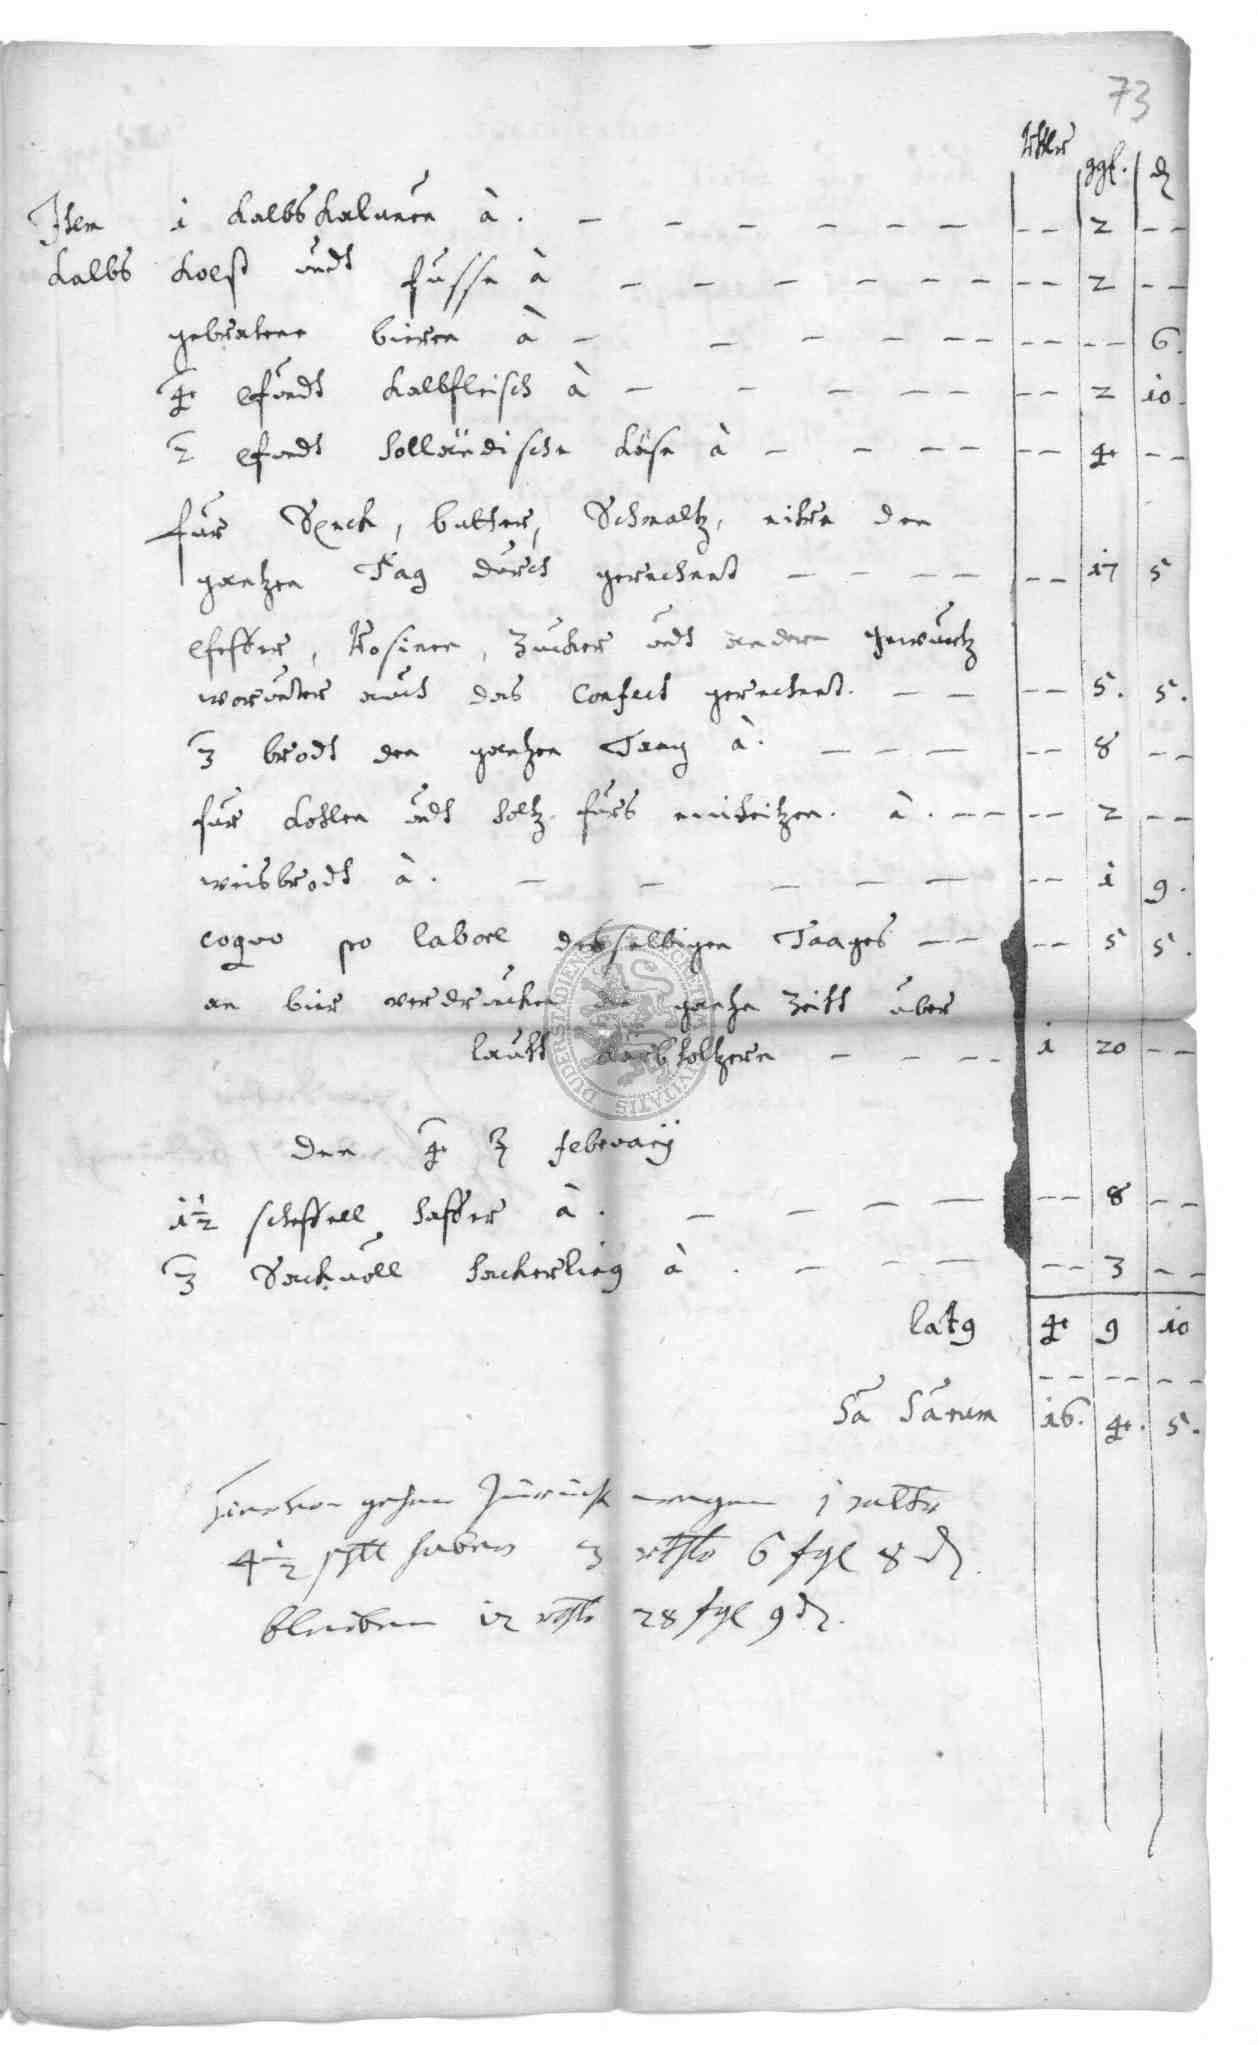 73
Rthlr ggl. ₰
Item 1 Kalbskalunen à . — — — — — — -- 2 --
Kalbs Kopff undt fusse à — — — — — — -- 2 --
gebratene bieren à — — — — -- -- -- 6.
4 Pfundt Kalbfleisch à — — — -- -- 2 10.
2 Pfundt hollendische Käse à — — -- -- 4 --
für Speck, butter, Schmaltz, eiern den
gantzen Tag durch gerechnet — — — — -- 17 5
Pfeffer, Rosinen, Zucker undt andern gewürtz
worunter auch das Confect gerechnet. — — -- 5. 5.
3 brodt den gantzen Taag à. — — — -- 8 --
für Kohlen undt holtz fürs einheitzen. à . -- -- 2 --
weisbrodt à . — — — — — -- 1 9.
coquo pro labore desselbigen Taages -- -- 5 5.
an bier verdruncken die gantze Zeitt über
lautt Karbholtzern — — — -- 1 20 --
den 4 Februarij
1½ scheffell haffer à . — — — — -- 8 --
3 Sackvoll heckerling à . — — — -- 3 --
lat9 4 9 10
-- -- -- --
Sa Sarum 16. 4. 5.
gehen Zurück wegen 1
4½ haben 3 rthlr 6 fgl 8 ₰.
bleiben 12 rthlr 28 fgl 9 ₰.
DUDERSTADIENSIS CIVITATIS